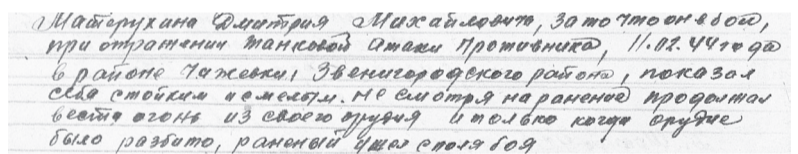 Матерухина Дмитрия Михайловича, за то что он в бой,
при отражении танковой атаки противника, 11.02.44 года
в районе Чижевки, Звенигородского района, показал
себя стойким и смелым. Не смотря на ранение продолжал
вести огонь из своего орудия и только когда орудие
было разбито, раненый ушел с поля боя